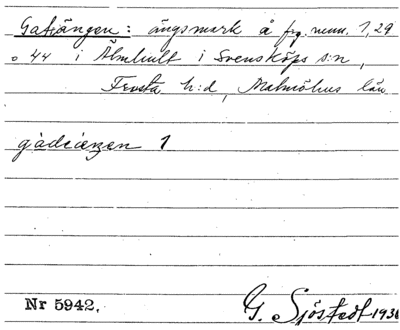 Gatiängen: ängsmark å frg. num. 1,29
o 44 i Älmhult i Svensköps s:n,
Frosta h:d, Malmöhus län
gàdiæŋen 1
Nr 5942.
G. Sjöstedt 1936